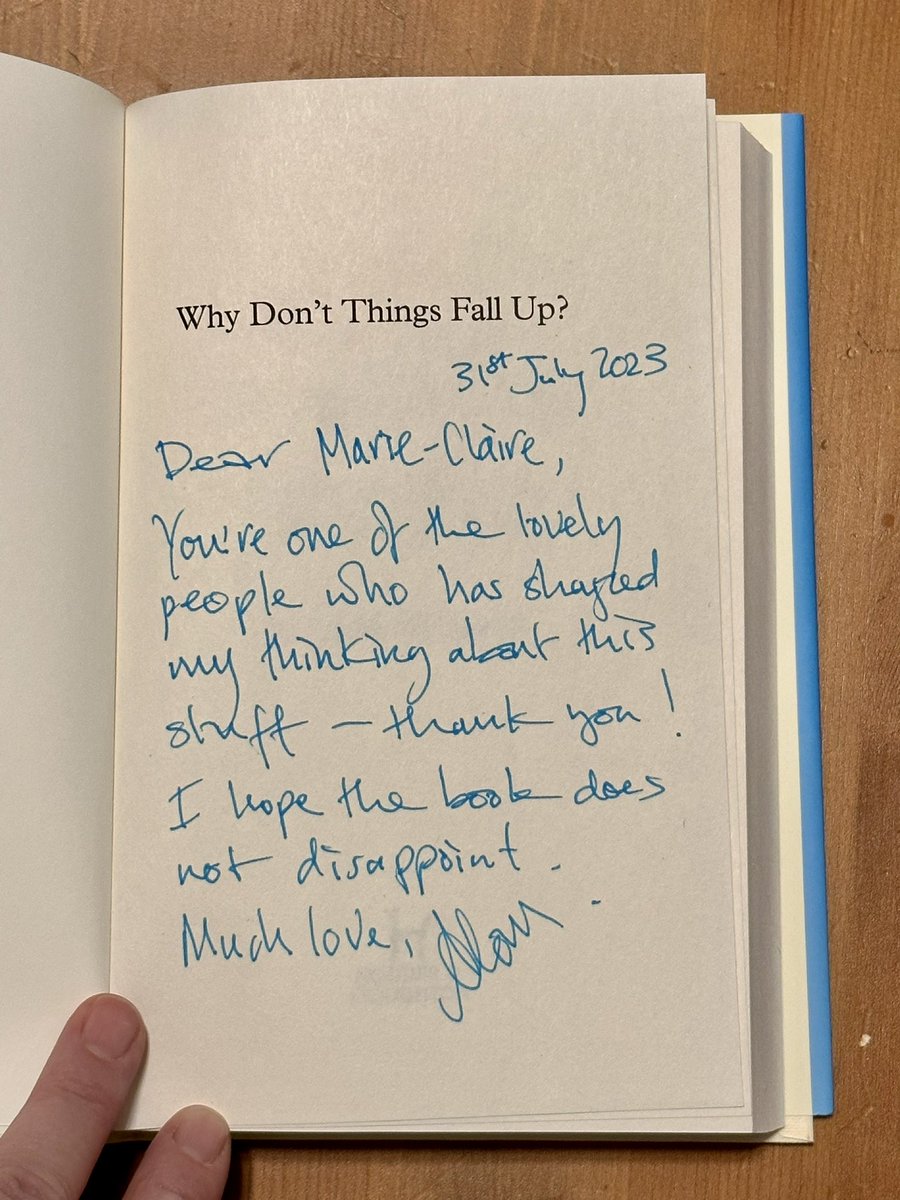 Why Don't Things Fall Up?
31st July 2023
Dear Marie-Claire,
You're one of the lovely
people who has shaped
my thinking about this
stuff – thank you!
I hope the book does
not disappoint.
Much love, Alom.